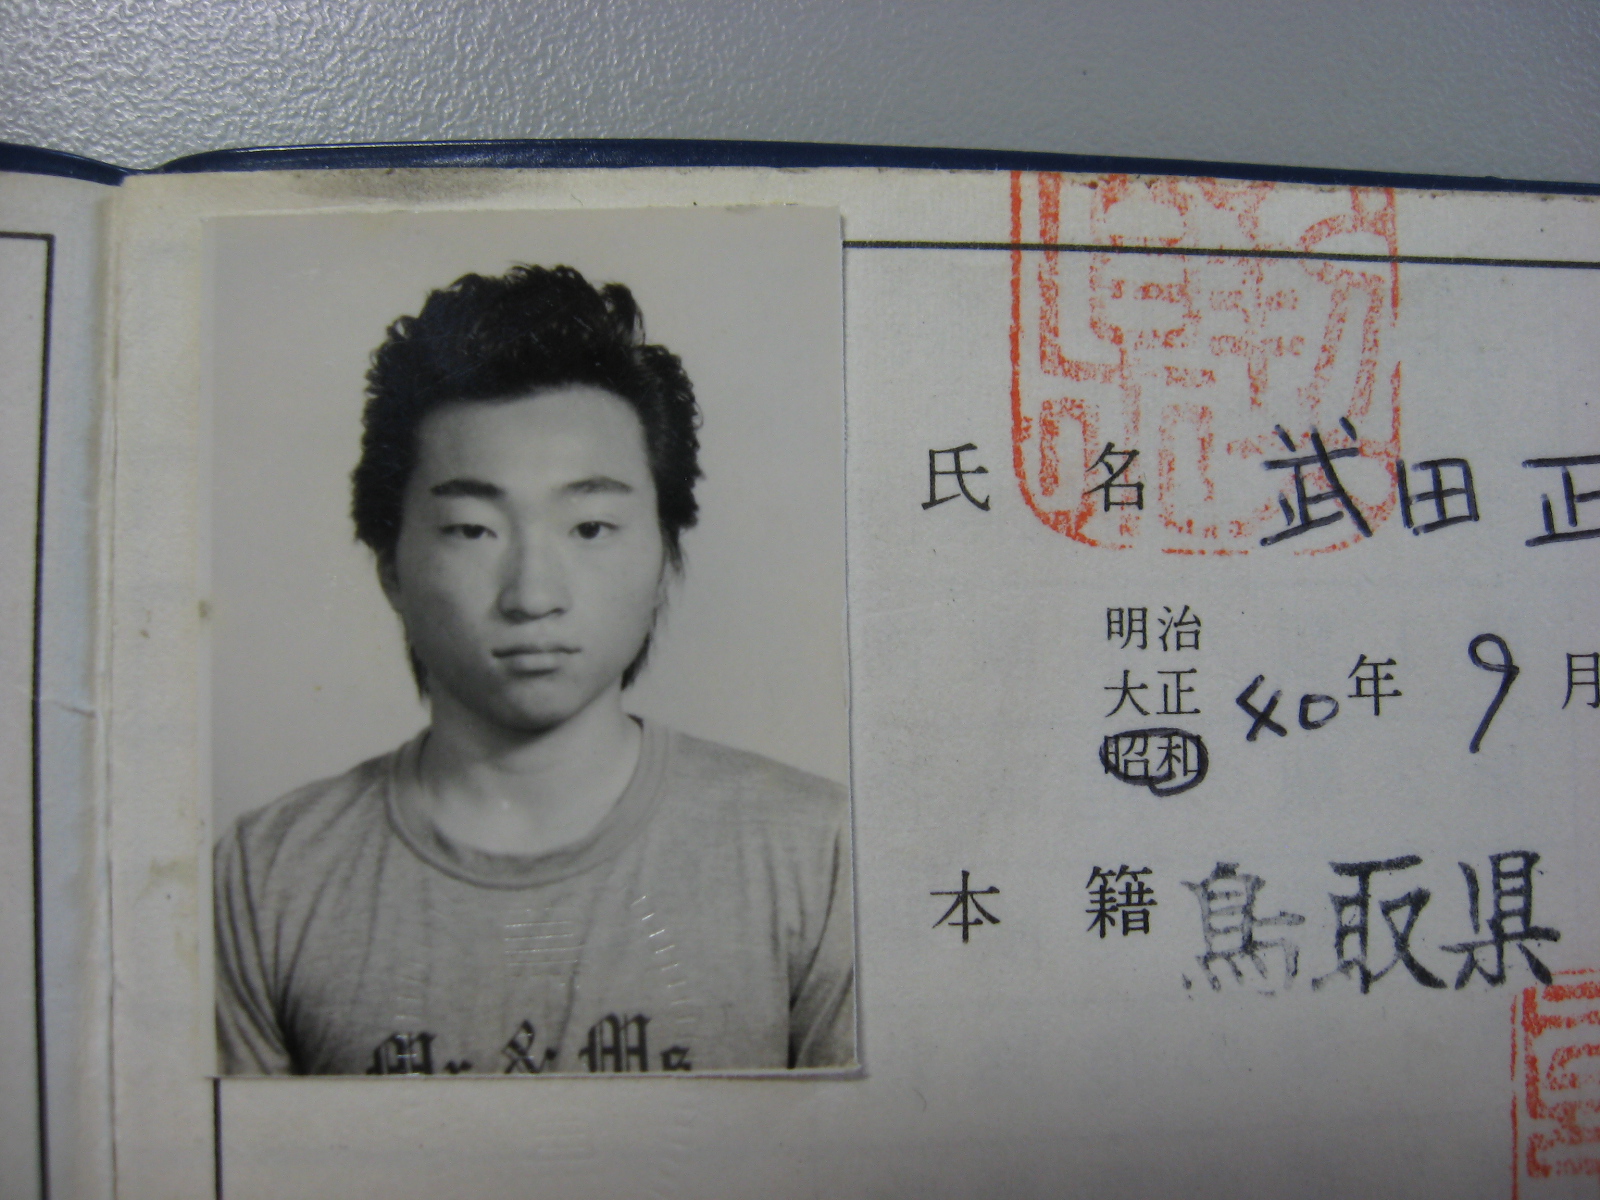 氏 名 武田 正
明治
大正 40年 9月
昭和
本 籍 鳥取県
Mr & Ms